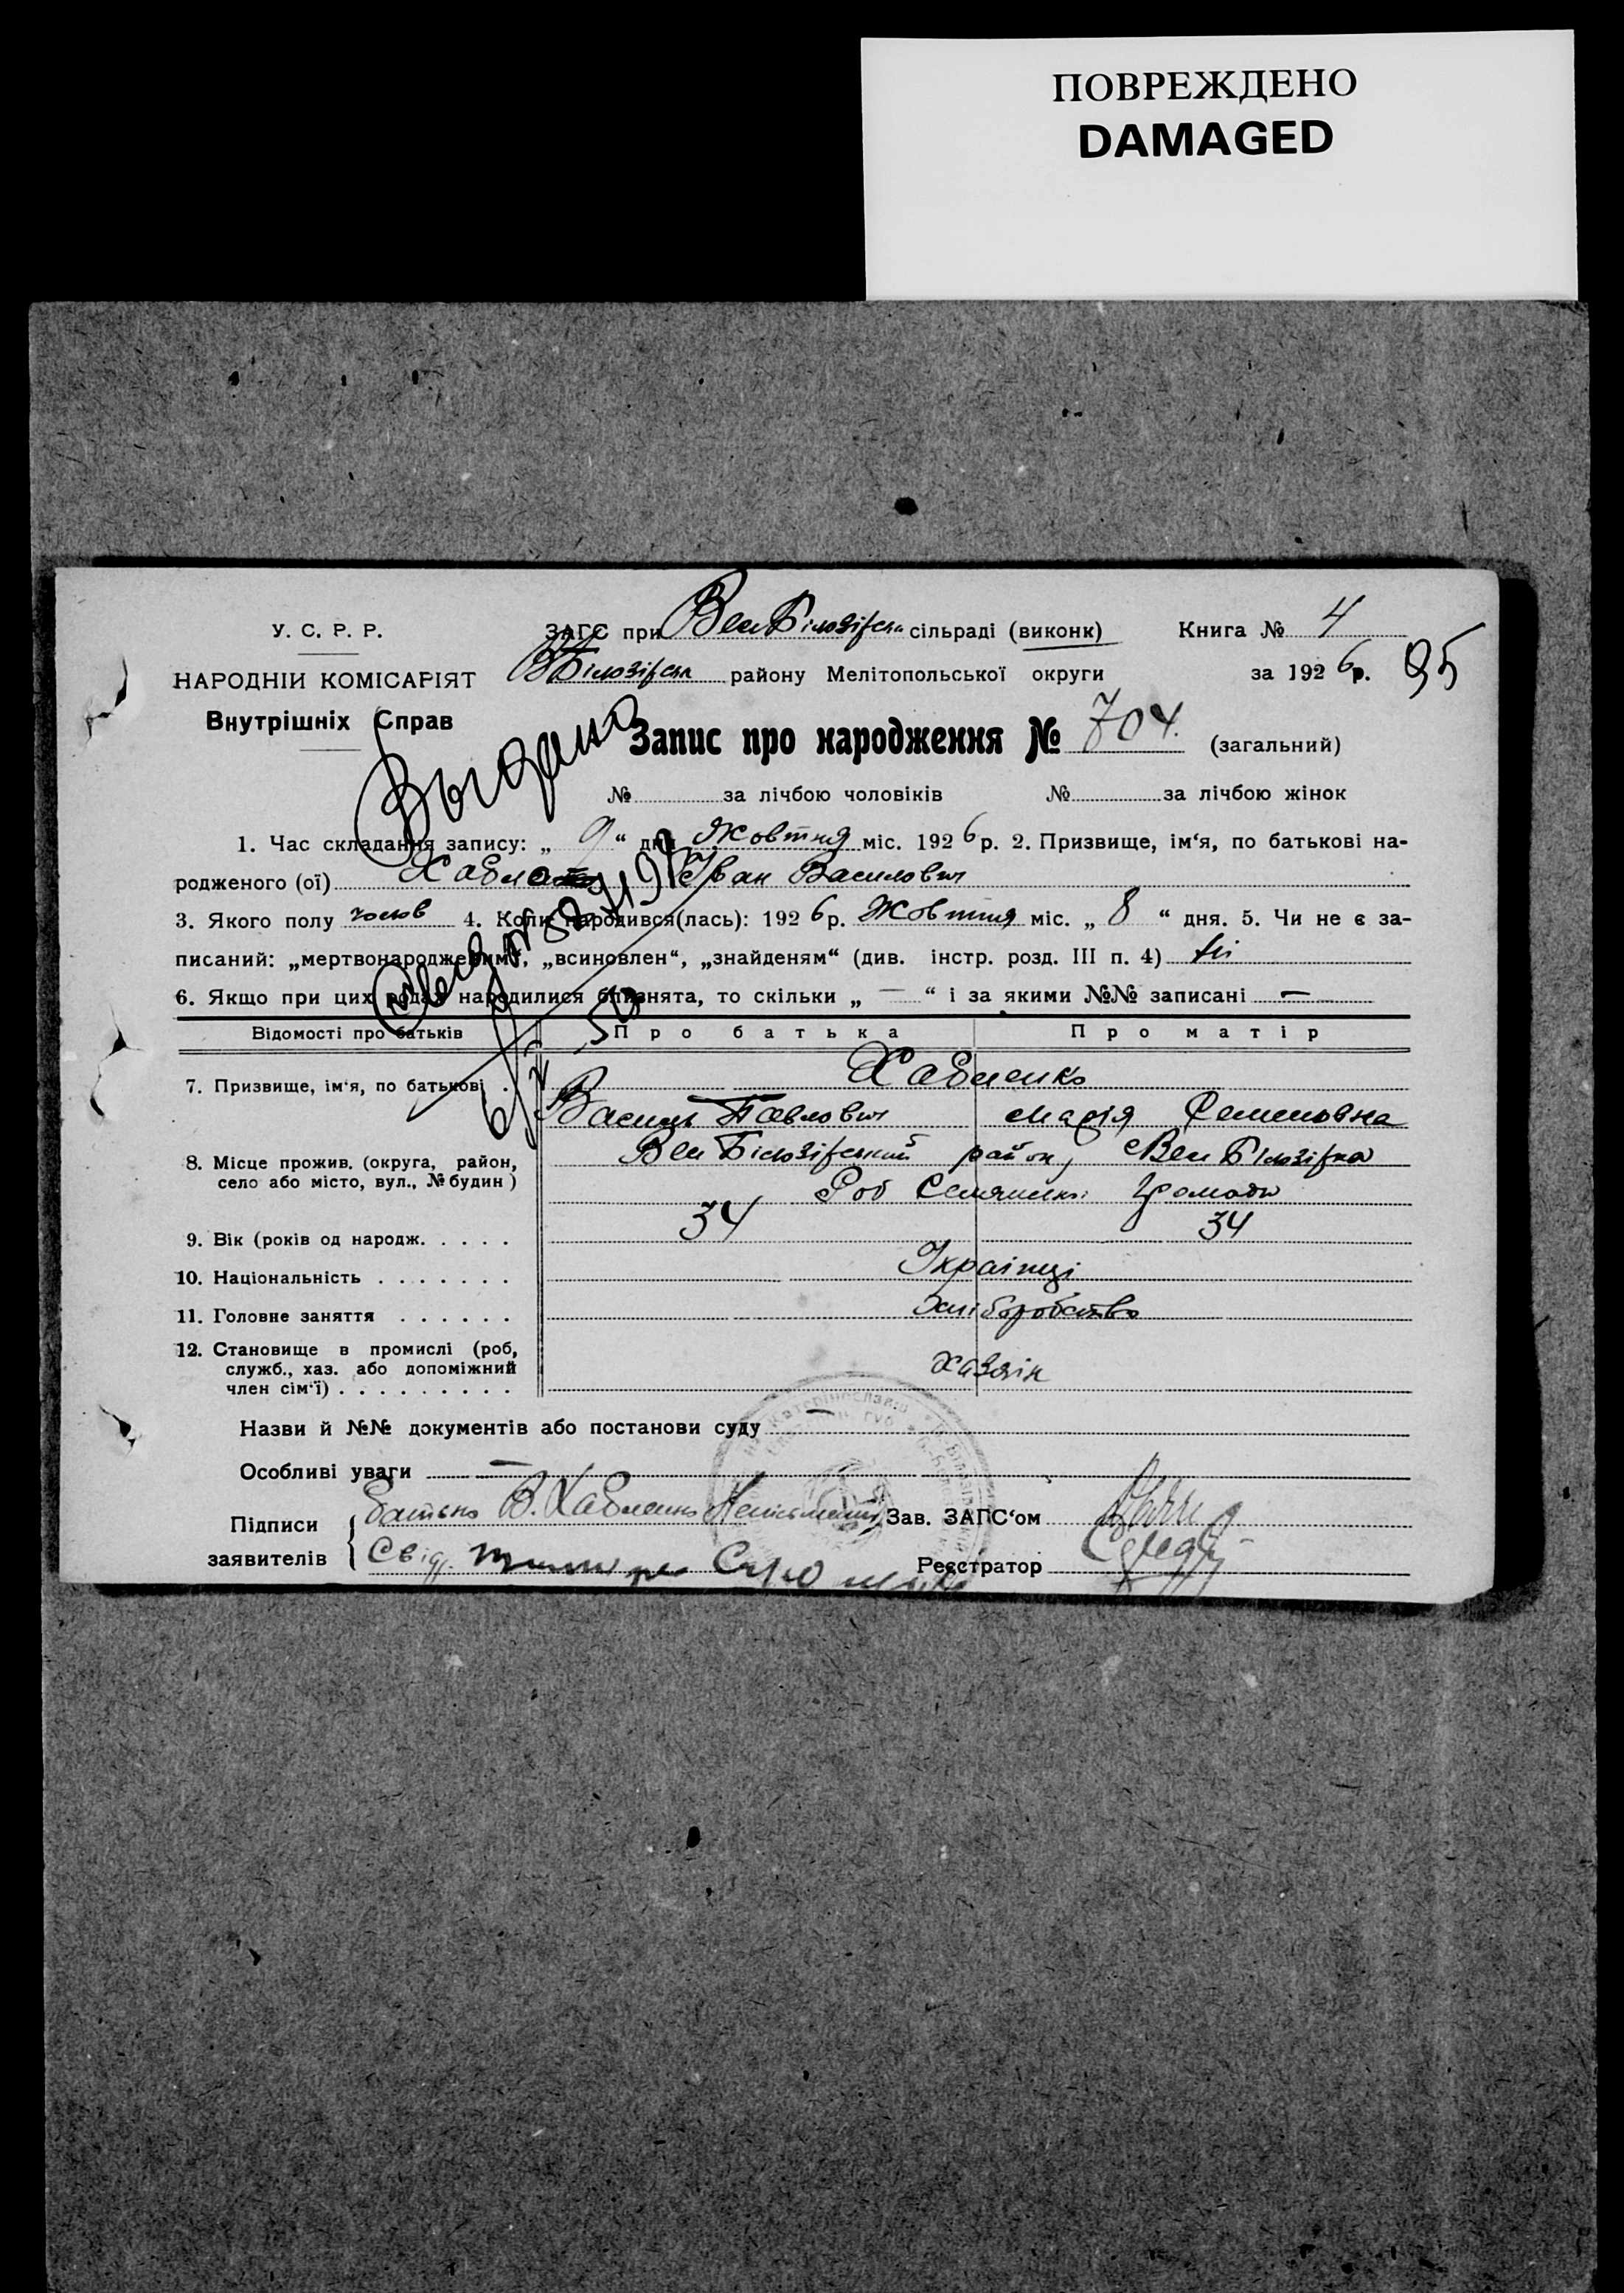 ПОВРЕЖДЕНО
DAMAGED
У. С. Р. Р.
ЗАГС при Вел Білозірськ сільраді (виконк) Книга № 4
НАРОДНІЙ КОМІСАРІЯТ
ВБілозірськ району Мелітопольської округи за 1926 р. 95
Внутрішніх Справ
Запис про народження № 704. (загальний)
Выдано
№ за лічбою чоловіків № за лічбою жінок
1. Час складання запису: „ 9 “ дня Жовтня міс. 1926 р. 2. Призвище, ім‘я, по батькові на-
родженого (ої) Іван Василович
3. Якого полу чолов 4. Коли народився(лась): 1926 р. Жовтня міс. „ 8 “ дня. 5. Чи не є за-
писаний: „мертвонародженим“, „всиновлен“, „знайденям“ (див. інстр. розд. III п. 4) Ні
6. Якщо при цих родах народилися близнята, то скільки „ — “ і за якими №№ записані —
Відомості про батьків Про батька Про матір
7. Призвище, ім‘я, по батькові . Хабленко
Василь Павлович Марія Семеновна
8. Місце прожив. (округа, район, село або місто, вул., № будин) Вел Білозірський район, Вел Білозірка
громади
9. Вік (років од народж. . . . . 34 34
10. Національність . . . . . . . Українці
11. Головне заняття . . . . . . Хліборобство
12. Становище в промислі (роб, служб., хаз. або допоміжний член сім‘ї) . . . . . . . . . Хазяїн
Назви й №№ документів або постанови суду —
Особливі уваги —
Підписи заявителів
батько В. Хабленко Неписьмений Зав. ЗАГС‘ом
Свід. Реєстратор